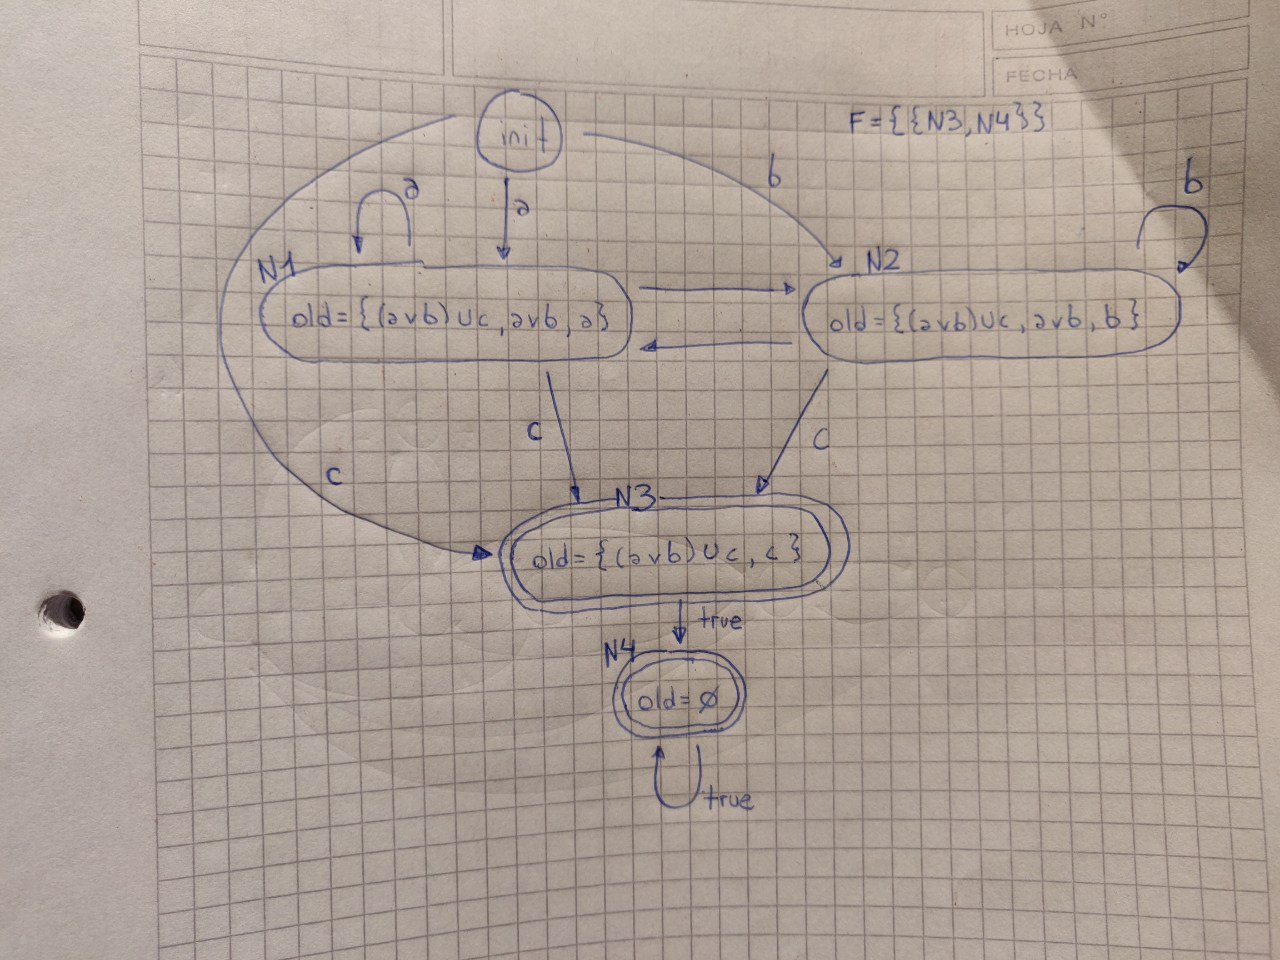 HOJA N°
FECHA
F={{N3,N4}}
init
b
a
a
b
N1
N2
old={(avb)Uc,avb,a}
old={(avb)Uc,avb,b}
c
c
c
N3
old={(avb)Uc,c}
true
N4
old=∅
true